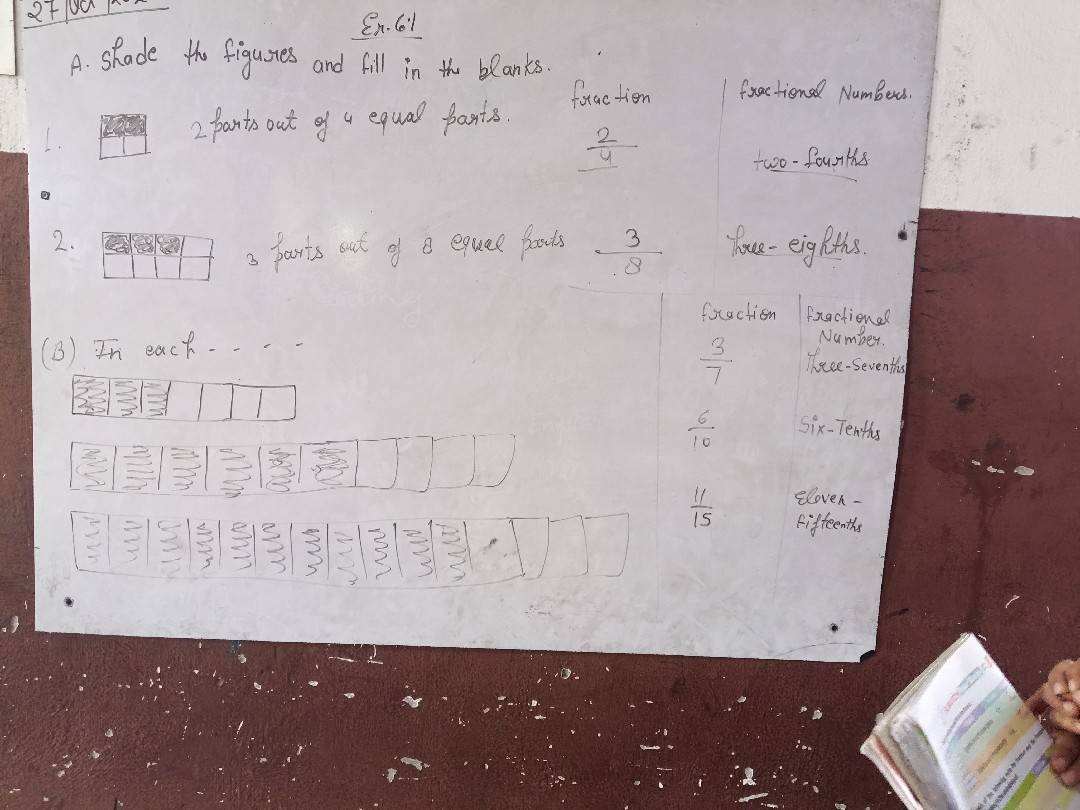 27
Ex. 6.1
A. Shade the figures and fill in the blanks.
fraction
fractional Numbers.
1. 2 parts out of 4 equal parts. 2/4 two-fourths
2. 3 parts out of 8 equal parts 3/8 Three-eighths.
fraction
fractional Number.
(B) In each - - - -
3/7 Three-Sevenths
6/10 Six-Tenths
11/15 Eleven-
Fifteenths